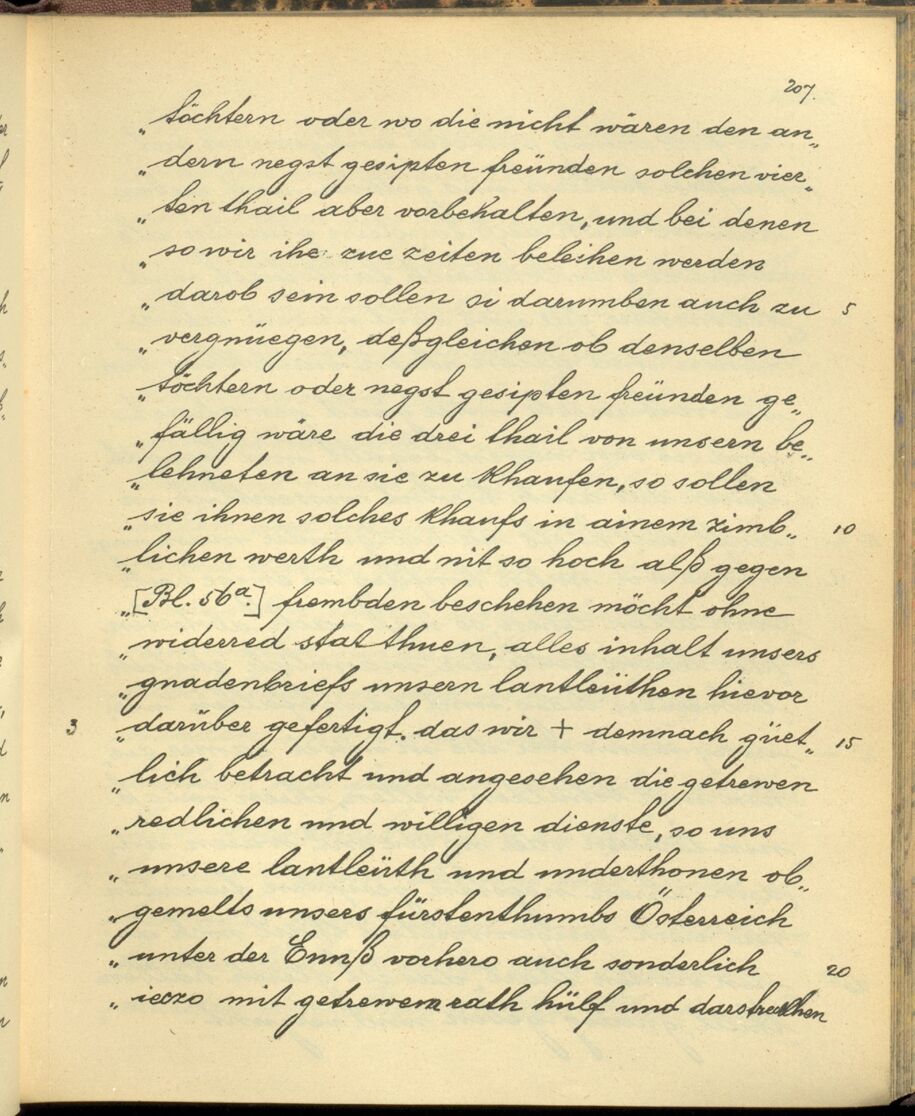 207.
„töchtern oder wo die nicht wären den an„
„dern negst gesipten freünden solchen vier„
„ten thail aber vorbehalten, und bei denen
„so wir ihe zue zeiten beleihen werden
„darob sein sollen si darumben auch zu 5
„vergnüegen, deßgleichen ob denselben
„töchtern oder negst gesipten freünden ge„
„fällig wäre die drei thail von unsern be„
„lehneten an sie zu khaufen, so sollen
„sie ihnen solches khaufs in ainem zimb„ 10
„lichen werth und nit so hoch alß gegen
„[Bl. 56a.] frembden beschehen möcht ohne
„widerred stat thuen, alles inhalt unsers
„gnadenbriefs unsern lantleüthen hievor
3 „darüber gefertigt. das wir + demnach güet„ 15
„lich betracht und angesehen die getrewen
„redlichen und willigen dienste, so uns
„unsere lantleüth und underthonen ob„
„gemelts unsers fürstenthumbs Österreich
„unter der Ennß vorhero auch sonderlich 20
„iezo mit getrewem rath hülf und darstrekhen